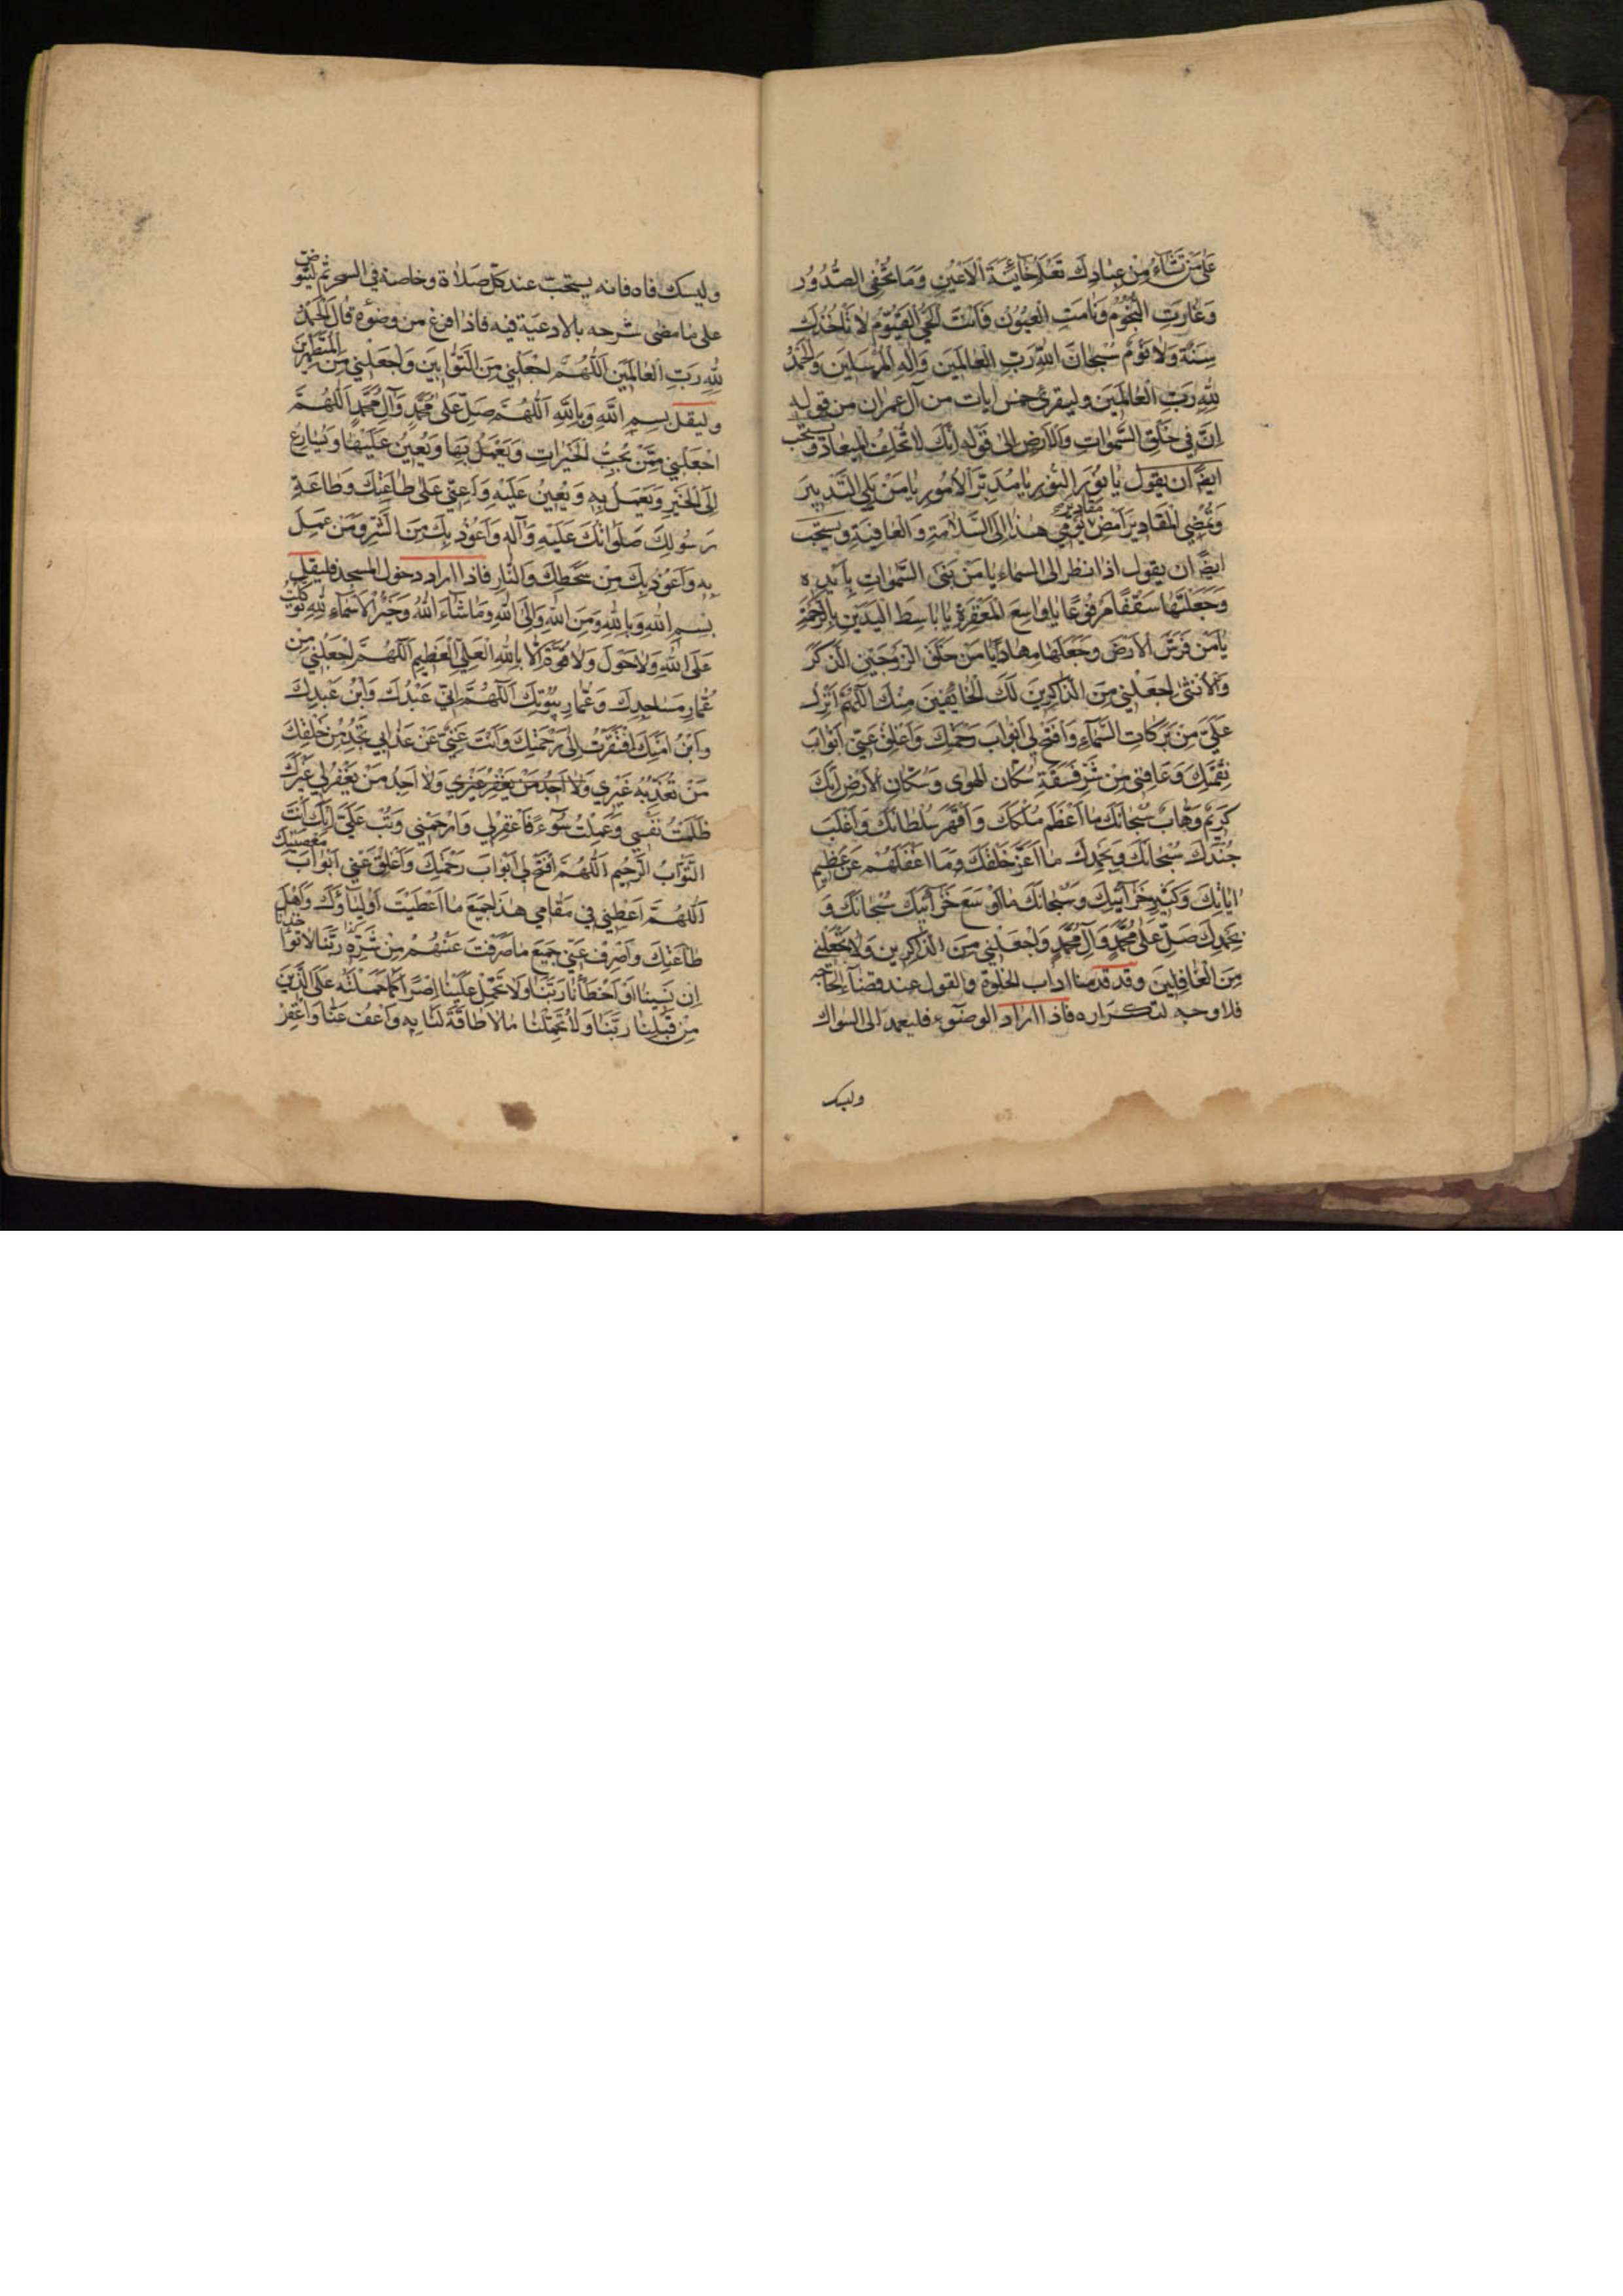 على من تشاء من عبادك تعلم خائنة الاعين وما تخفى الصدور
وغارت النجوم ونامت العيون وانت الحي القيوم لا تاخذك
سنة ولا نوم سبحان الله رب العالمين واله المرسلين والحمد
لله رب العالمين وليقرئ خمس ايات من آل عمران من قوله
ان في خلق السموات والارض الى قوله انك لا تخلف الميعاد ويستحب
ايضا ان يقول يا نور النور يا مدبر الامور يا من يلي التدبير
ويمضي المقادير امض مقادير يومي هذا الى السلامة والعافية ويستحب
ايضا ان يقول اذا نظر الى السماء يا من بنى السموات بايده
وجعلها سقفا مرفوعا يا واسع المغفرة يا باسط اليدين بالرحمة
يا من فرش الارض وجعلها مهادا يا من خلق الزوجين الذكر
والانثى اجعلني من الذاكرين لك الخائفين منك اللهم انزل
علي من بركات السماء وافتح لي ابواب رحمتك واغلق عني ابواب
نقمتك وعافني من شر فسقة سكان الهوى وسكان الارض انك
كريم وهاب سبحانك ما اعظم ملكك واقهر سلطانك واغلب
جندك سبحانك وبحمدك ما اعز خلقك وما اغفلهم عن عظيم
اياتك وكثير خزائنك وسبحانك ما اوسع خزائنك سبحانك و
بحمدك صل على محمد وآل محمد واجعلني من الذاكرين ولا تجعلني
من الغافلين وقد قدمنا اداب الخلوة والقول عند قضاء الحاجة
فلا وجه لتكراره فاذا اراد الوضوء فليعمد الى السواك
وليسك
وليسك فاه فانه يستحب عند كل صلاة وخاصة في السحر ثم ليتوض
على ما مضى شرحه بالادعية فيه فاذا فرغ من وضوئه قال الحمد
لله رب العالمين اللهم اجعلني من التوابين واجعلني من المتطهرين
وليقل بسم الله وبالله اللهم صل على محمد وآل محمد اللهم
اجعلني ممن يحب الخيرات ويعمل بها ويعين عليها ويسارع
الى الخير ويعمل به ويعين عليه واعني على طاعتك وطاعة
رسولك صلواتك عليه وآله واعوذ بك من الشر ومن عمل
به واعوذ بك من سخطك والنار فاذا اراد دخول المسجد فليقل
بسم الله وبالله ومن الله والى الله وما شاء الله وخير الاسماء لله توكلت
على الله ولا حول ولا قوة الا بالله العلي العظيم اللهم اجعلني من
عمار مساجدك وعمار بيوتك اللهم اني عبدك وابن عبدك
وابن امتك افتقرت الى رحمتك وانت غني عن عذابي تجد من خلقك
من تعذبه غيري ولا اجد من يغفر غيري ولا اجد من يغفر لي غيرك
ظلمت نفسي وعملت سوء فاغفر لي وارحمني وتب علي انك انت
التواب الرحيم اللهم افتح لي ابواب رحمتك واغلق عني ابواب معصيتك
اللهم اعطني في مقامي هذا جميع ما اعطيت اولياؤك واهل
طاعتك واصرف عني جميع ما صرفت عنهم من شره ربنا لا تؤاخذنا
ان نسينا او اخطأنا ربنا ولا تحمل علينا اصرا كما حملته على الذين
من قبلنا ربنا ولا تحملنا ما لا طاقة لنا به واعف عنا واغفر